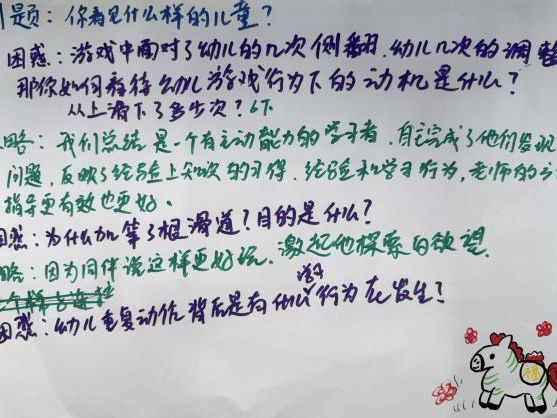 题：你看见什么样的儿童？
困惑：游戏中面对了幼儿的几次侧翻，幼儿几次的调整
那你如何看待幼儿游戏行为下的动机是什么？
从上滑下了多少次？6下
略：我们总结是一个有主动能力的学习者，自主完成了他们发现
问题，反映了经验上知次的习得，经验和学习行为，老师的
指导更有效也更好。
惑：为什么加了根滑道？目的是什么？
略：因为同伴说这样更好玩，激起他探索的欲望。
困惑：幼儿重复动作背后是有什么学习行为在发生？
福